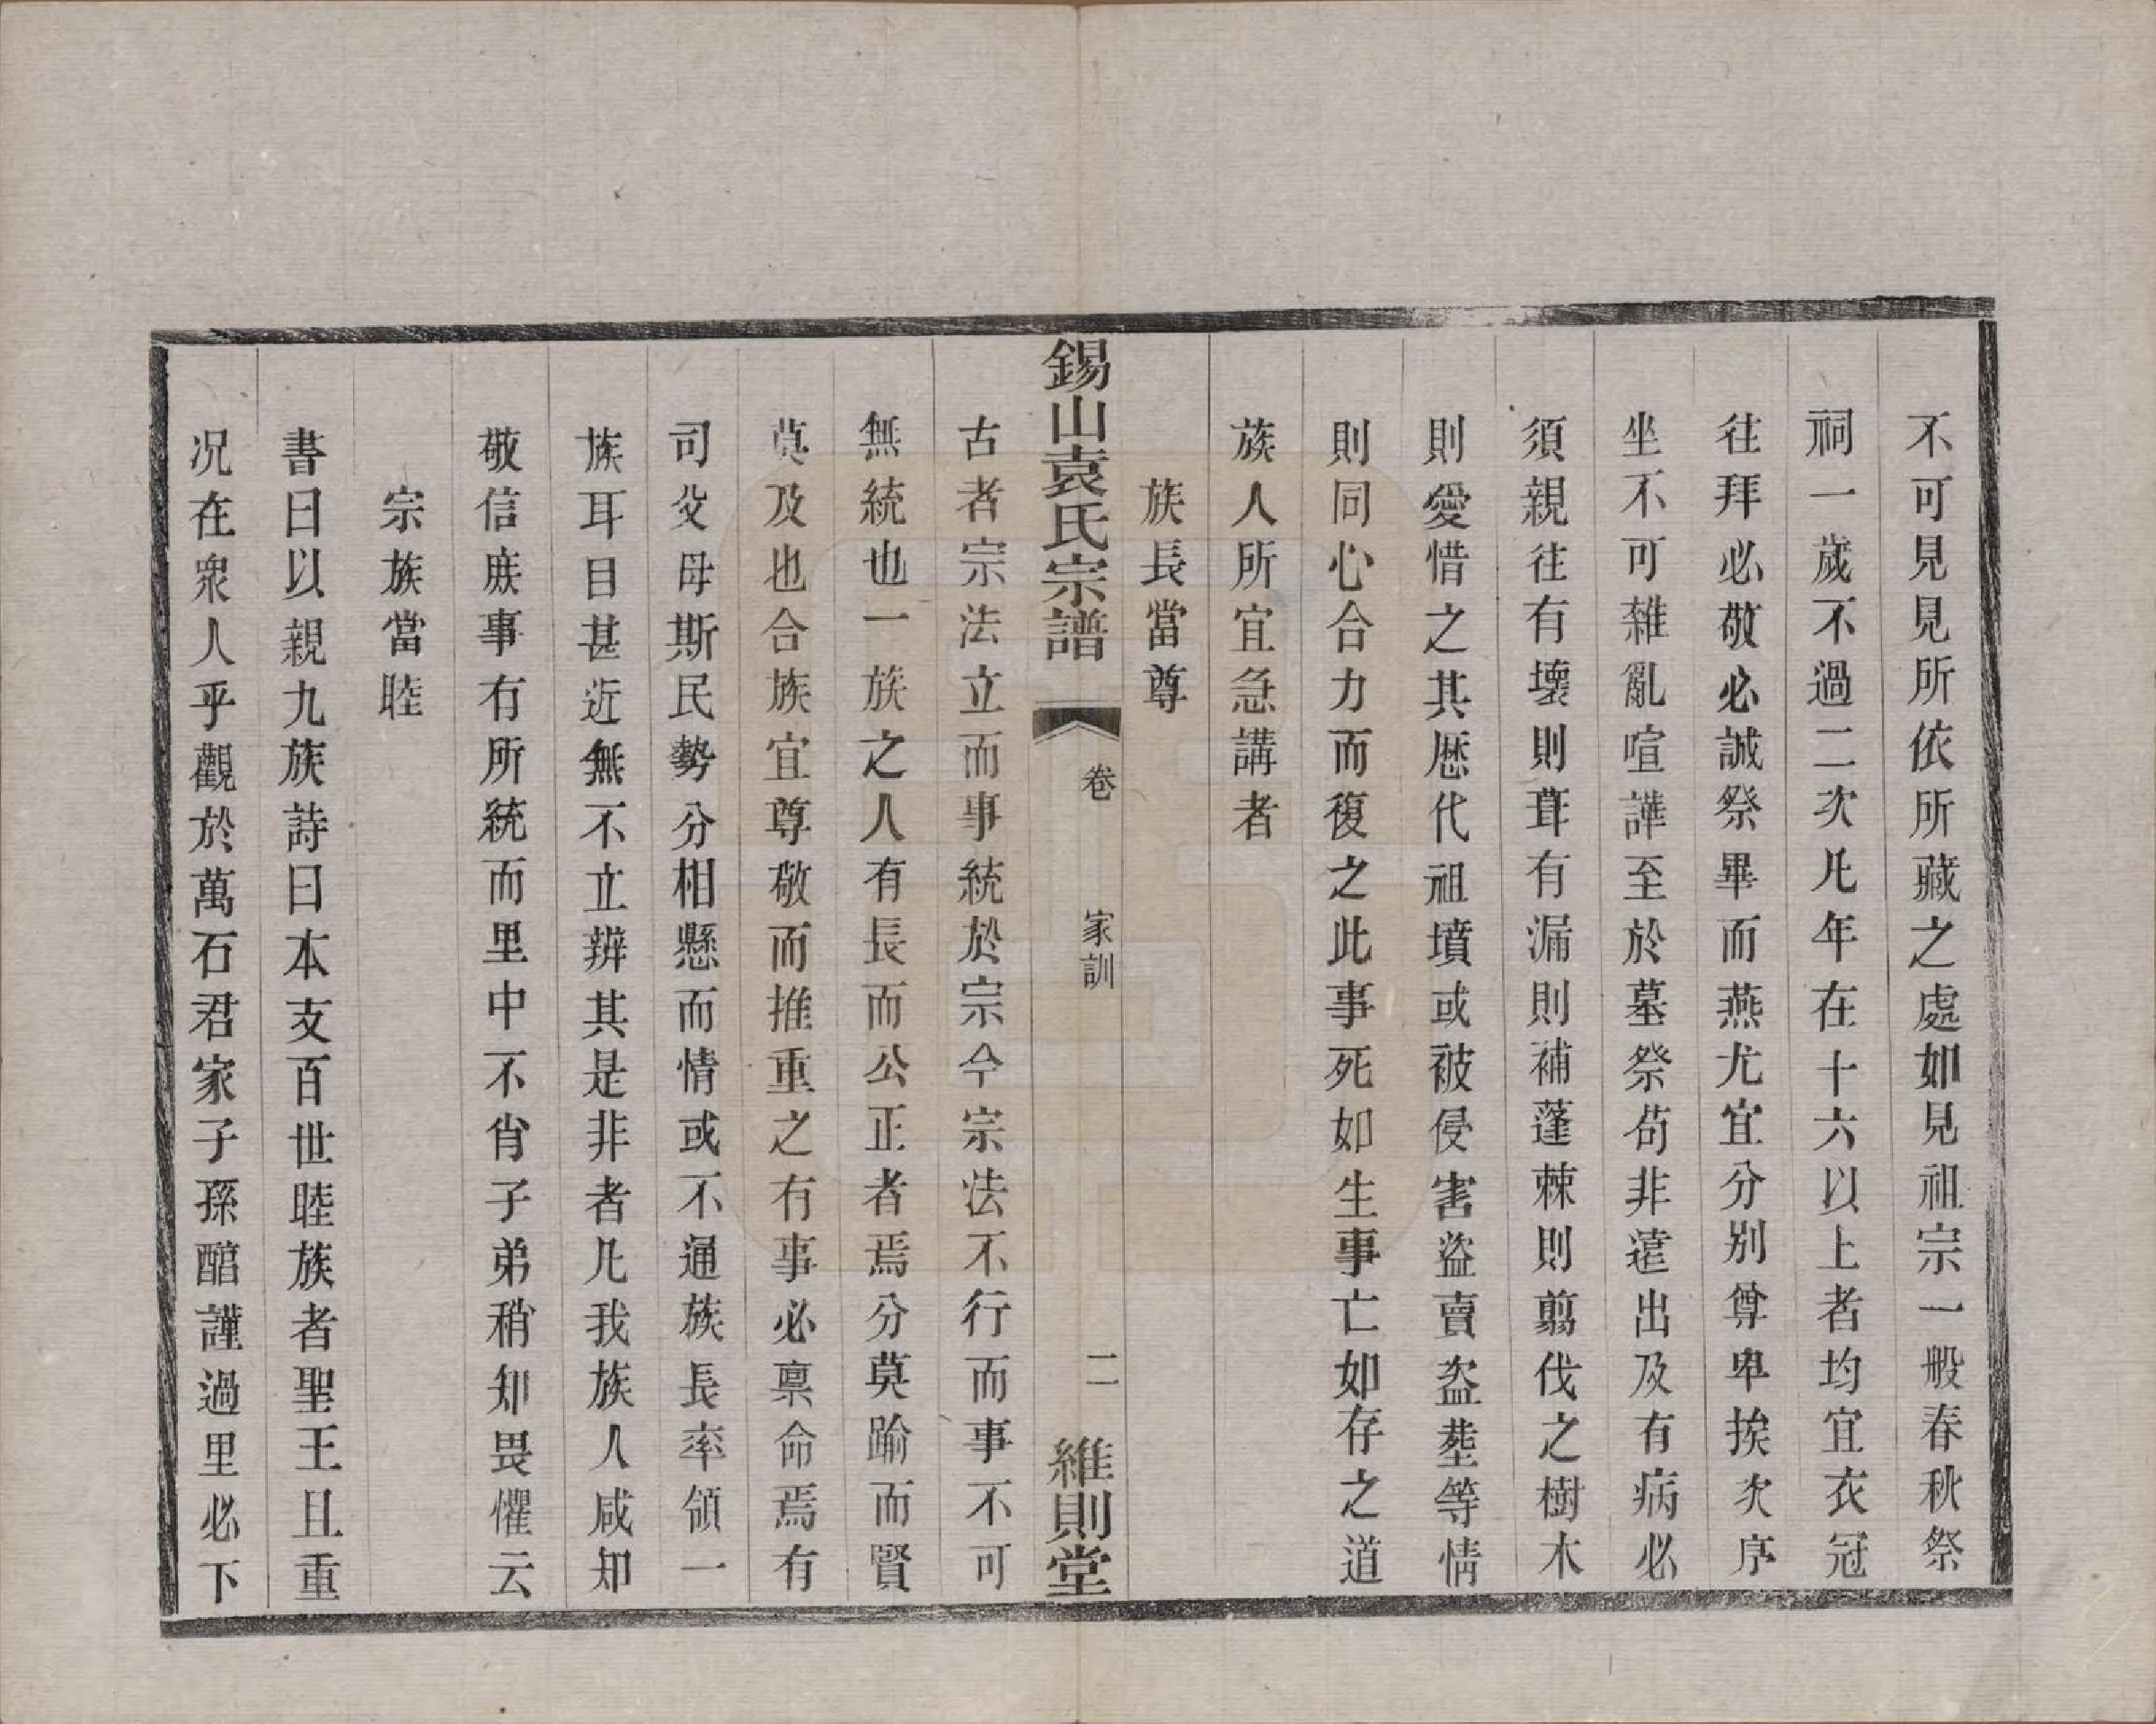 不可見見所依所藏之處如見祖宗一般春秋祭
祠一歲不過二次凡年在十六以上者均宜衣冠
往拜必敬必誠祭畢而燕尤宜分别尊卑挨次序
坐不可雜亂喧譁至於墓祭茍非遠出及有病必
須親往有壞則葺有漏則補蓬棘則翦伐之樹木
則愛惜之其歷代祖墳或被侵害盜賣盜塟等情
則同心合力而復之此事死如生事亡如存之道
族人所宜急講者
族長當尊
錫山袁氏宗譜 卷 家訓 二 維則堂
古者宗法立而事統於宗今宗法不行而事不可
無統也一族之人有長而公正者焉分莫踰而賢
莫及也合族宜尊敬而推重之有事必禀命焉有
司父母斯民勢分相懸而情或不通族長率領一
族耳目甚近無不立辨其是非者凡我族人咸知
敬信庶事有所統而里中不肖子弟稍知畏懼云
宗族當睦
書曰以親九族詩曰本支百世睦族者聖王且重
况在衆人乎觀於萬石君家子孫醇謹過里必下